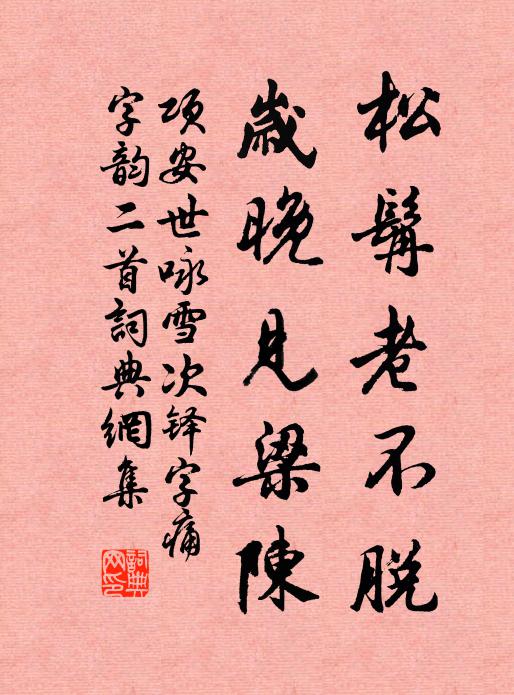 松髯老不脱
歲晚見梁陳
項安世咏雪次铎字痛
字韵二首詞典網集
詞典網印